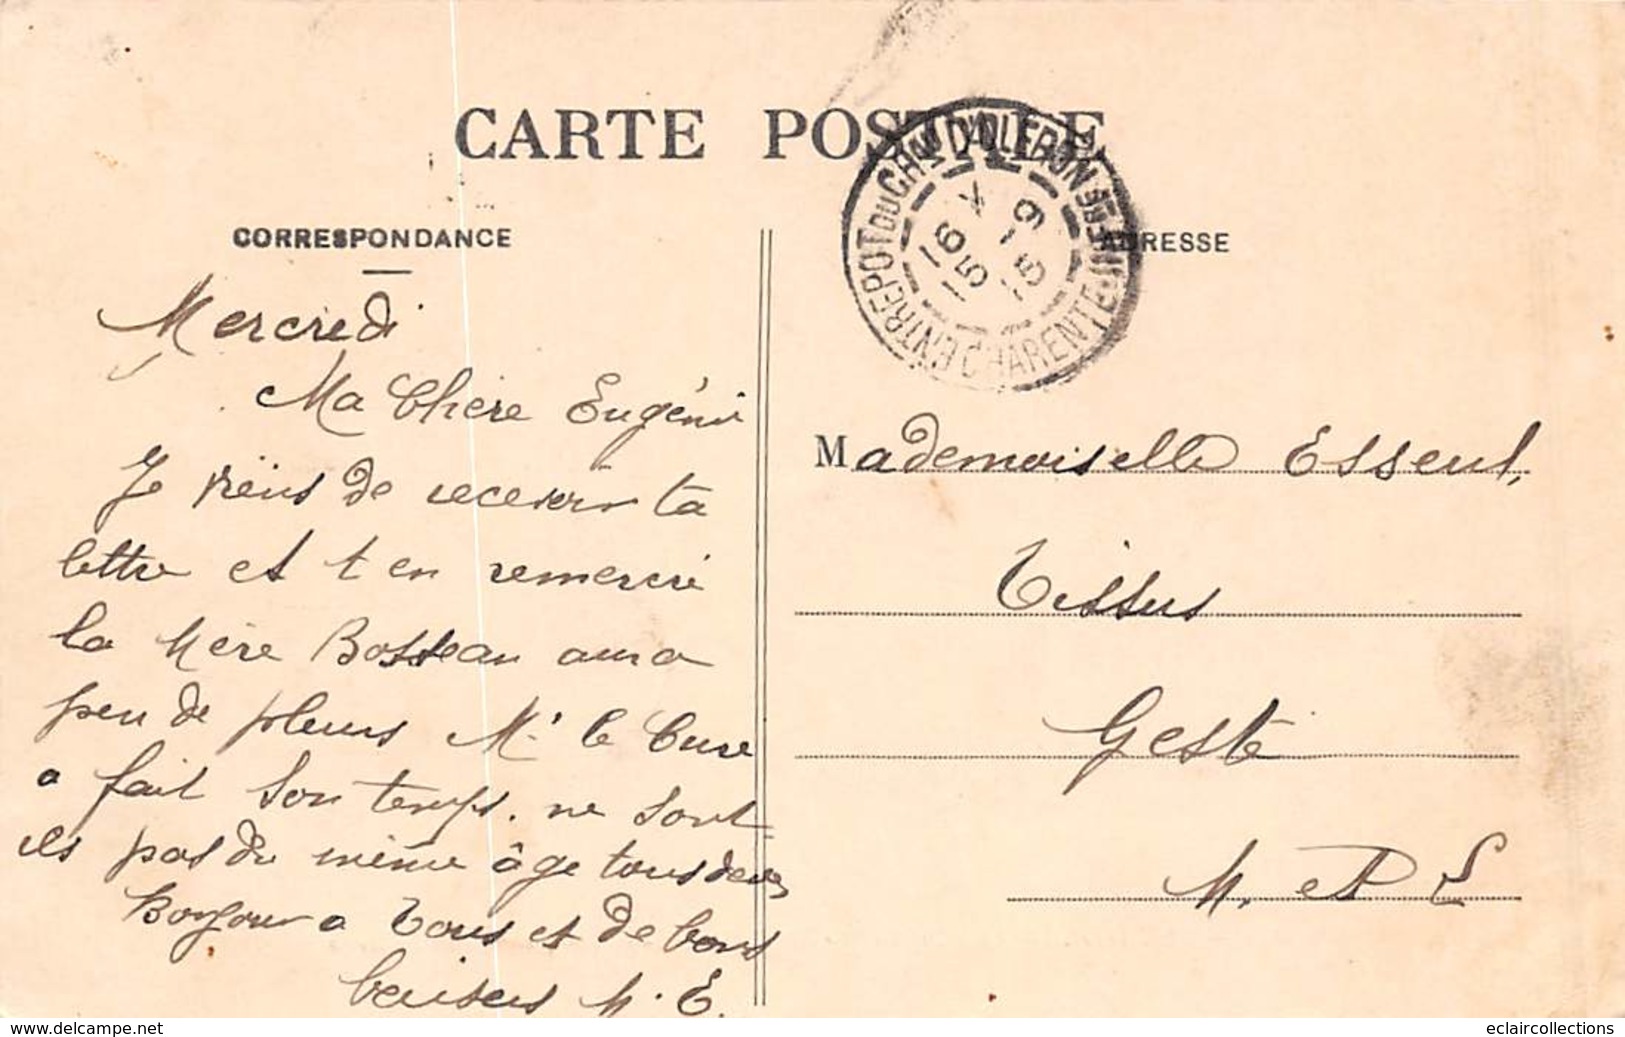 CARTE POSTALE
ENTREPOT DU CHAU D'OLERON
CHARENTE INFRE
16 X
15 - 9
15
CORRESPONDANCE
ADRESSE
Mercredi
Ma Chère Eugénie
Je viens de recevoir ta
lettre et t en remercie
la Mère Bosseau aura
peu de pleurs Mr le Cure
a fait son temps. ne sont-
ils pas du même âge tous deux
Bonjour a tous et de bons
baisers M. E.
Mademoiselle Esseul,
Tissus
Gesté
M. et L
www.delcampe.net
eclaircollections